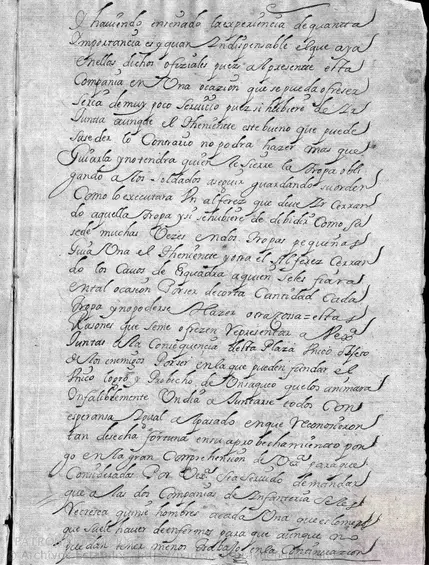 Y haviendo enseñado la experiencia de quanta
Importancia es y quan Indispensable el que aya
En ellas dichos ofiziales pues al presente esta
Compañia en Una ocazion que se pueda ofreser
seria de muy poco seruicio pues si hubiere de Ir
Junta aunque el Theniente este bueno que puede
suseder lo Contrario no podra hazer mas que
Guiarla y no tendra quien le sierre la tropa obli
gando a los soldados a seguir guardando su orden
Como lo executara Un alferez que deue Ir Cerran
do aquella tropa y si se hubiere de dibidir Como su
sede muchas Vezes en dos tropas pequeñas
Guia Una el Theniente y otra el Alferez Cerran
do los Cauos de esquadra a quien se les fiara
en tal ocasion Por ser de corta Cantidad Cada
tropa y no poderse Hazer otra cosa estas
Rasones que se me ofrezen representar a Vex.ª
Juntas a la Consequencia desta Plaza Unico
de los enemigos Por ser en la que pueden fundar el
Unico logro y Probecho de que los animara
Infaliblemente Un dia a Juntarse todos Con
esperansa en que reconosieron
tan desecha fortuna en su aprobechamiento pon
go en la gran Comprehension de Vex.ª para que
Consideradas Por Vex.ª sea seruido de mandar
que a las dos Companias de Infanteria se les
quinse hombres a cada Una
que suele hauer de enfermos para que aunque no
puedan tener menos trabajo en la Continuazion